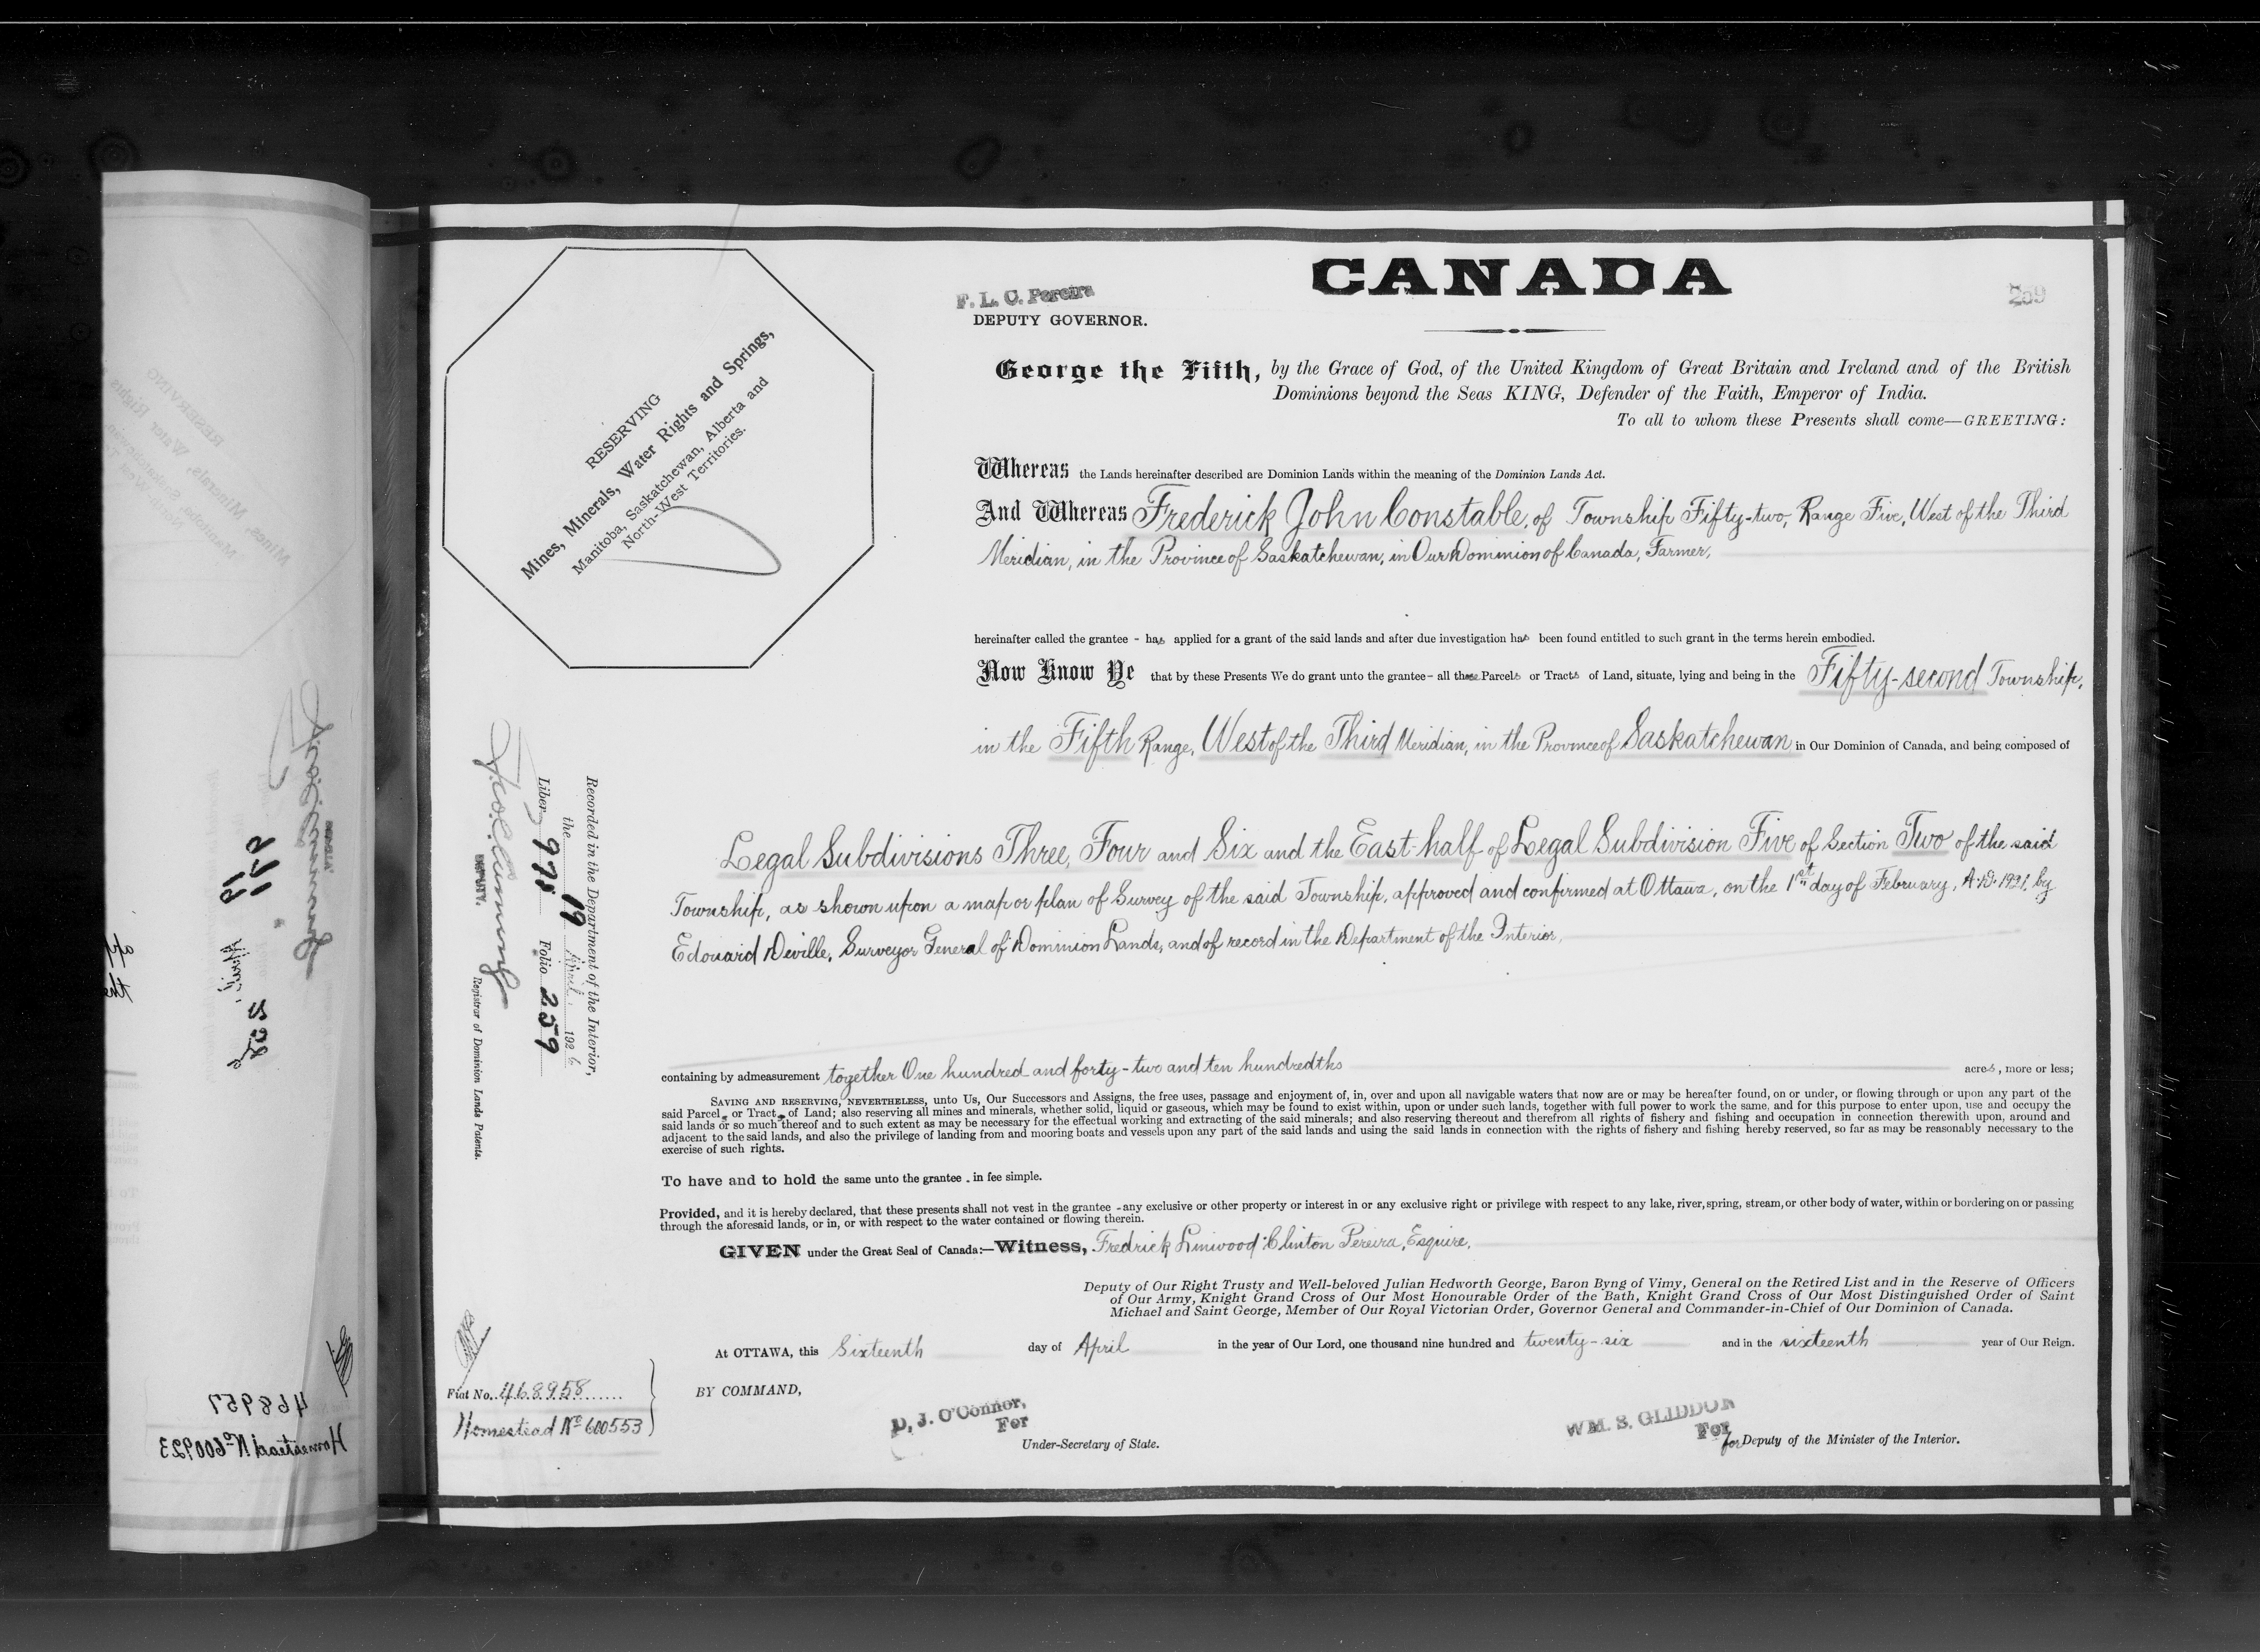 CANADA
F. L. C. Pereira
DEPUTY GOVERNOR.
259
George the Fifth, by the Grace of God, of the United Kingdom of Great Britain and Ireland and of the British
Dominions beyond the Seas KING, Defender of the Faith, Emperor of India.
To all to whom these Presents shall come—GREETING:
RESERVING
Mines, Minerals, Water Rights and Springs,
Manitoba, Saskatchewan, Alberta and
North-West Territories.
Whereas the Lands hereinafter described are Dominion Lands within the meaning of the Dominion Lands Act.
And Whereas Frederick John Constable, of Township Fifty-two, Range Five, West of the Third
Meridian, in the Province of Saskatchewan, in Our Dominion of Canada, Farmer,
hereinafter called the grantee - has applied for a grant of the said lands and after due investigation has been found entitled to such grant in the terms herein embodied.
Now Know Ye that by these Presents We do grant unto the grantee - all those Parcels or Tracts of Land, situate, lying and being in the Fifty-second Township,
in the Fifth Range, West of the Third Meridian, in the Province of Saskatchewan in Our Dominion of Canada, and being composed of
Legal Subdivisions Three, Four and Six and the East-half of Legal Subdivision Five of Section Two of the said
Township, as shown upon a map or plan of Survey of the said Township, approved and confirmed at Ottawa, on the 1st day of February, A.D. 1921, by
Edouard Deville, Surveyor General of Dominion Lands, and of record in the Department of the Interior,
containing by admeasurement together One hundred and forty-two and ten hundredths acres, more or less;
SAVING AND RESERVING, NEVERTHELESS, unto Us, Our Successors and Assigns, the free uses, passage and enjoyment of, in, over and upon all navigable waters that now are or may be hereafter found, on or under, or flowing through or upon any part of the
said Parcels or Tracts of Land; also reserving all mines and minerals, whether solid, liquid or gaseous, which may be found to exist within, upon or under such lands, together with full power to work the same, and for this purpose to enter upon, use and occupy the
said lands or so much thereof and to such extent as may be necessary for the effectual working and extracting of the said minerals; and also reserving thereout and therefrom all rights of fishery and fishing and occupation in connection therewith upon, around and
adjacent to the said lands, and also the privilege of landing from and mooring boats and vessels upon any part of the said lands and using the said lands in connection with the rights of fishery and fishing hereby reserved, so far as may be reasonably necessary to the
exercise of such rights.
To have and to hold the same unto the grantee - in fee simple.
Provided, and it is hereby declared, that these presents shall not vest in the grantee - any exclusive or other property or interest in or any exclusive right or privilege with respect to any lake, river, spring, stream, or other body of water, within or bordering on or passing
through the aforesaid lands, or in, or with respect to the water contained or flowing therein.
GIVEN under the Great Seal of Canada:—Witness, Fredrick Linwood Clinton Pereira, Esquire,
Deputy of Our Right Trusty and Well-beloved Julian Hedworth George, Baron Byng of Vimy, General on the Retired List and in the Reserve of Officers
of Our Army, Knight Grand Cross of Our Most Honourable Order of the Bath, Knight Grand Cross of Our Most Distinguished Order of Saint
Michael and Saint George, Member of Our Royal Victorian Order, Governor General and Commander-in-Chief of Our Dominion of Canada.
At OTTAWA, this Sixteenth day of April in the year of Our Lord, one thousand nine hundred and twenty-six and in the sixteenth year of Our Reign.
BY COMMAND,
D. J. O'Connor,
For
Under-Secretary of State.
WM. S. GLIDDON
For
for Deputy of the Minister of the Interior.
Recorded in the Department of the Interior,
the 19 April. 1926
Liber 978 Folio 259
DEPUTY.
Registrar of Dominion Lands Patents.
Fiat No. 468958
Homestead No 600553
468957
Homestead No 600923